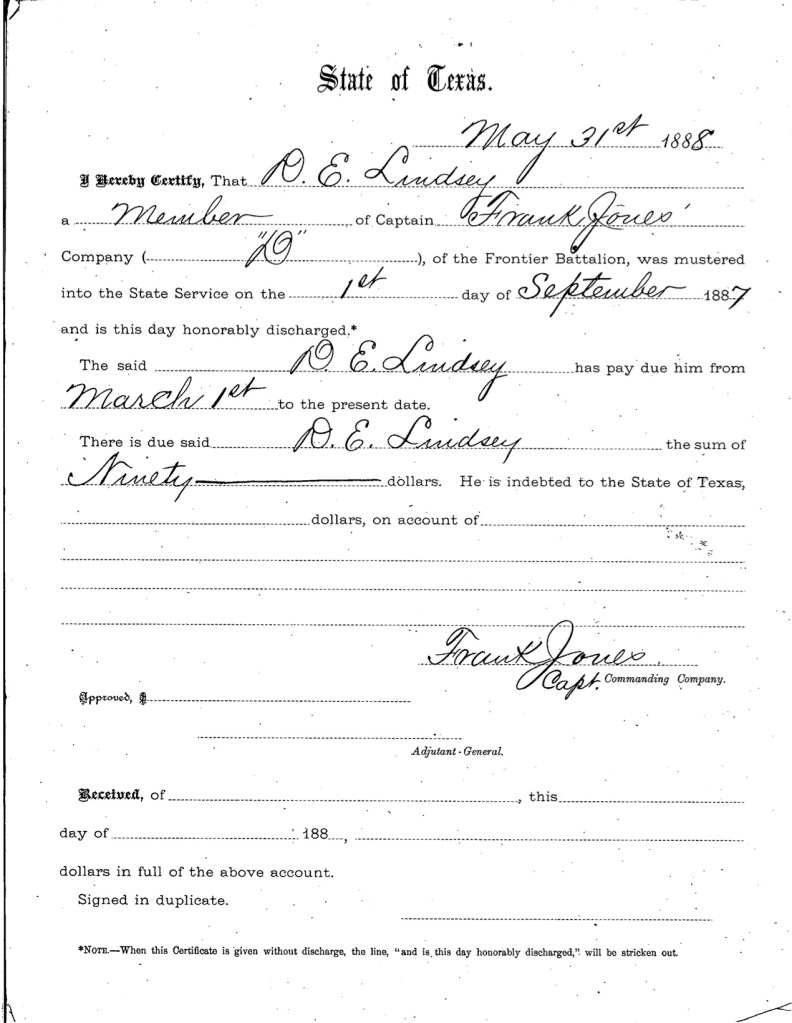 State of Texas.
May 31st 1888
I Hereby Certify, That D. E. Lindsey
a Member of Captain Frank Jones'
Company ( "D" ), of the Frontier Battalion, was mustered
into the State Service on the 1st day of September 1887
and is this day honorably discharged.*
The said D. E. Lindsey has pay due him from
March 1st to the present date.
There is due said D. E. Lindsey the sum of
Ninety dollars. He is indebted to the State of Texas,
dollars, on account of
Frank Jones
Capt. Commanding Company.
Approved, $
Adjutant-General.
Received, of , this
day of 188 ,
dollars in full of the above account.
Signed in duplicate.
*NOTE.—When this Certificate is given without discharge, the line, "and is this day honorably discharged," will be stricken out.